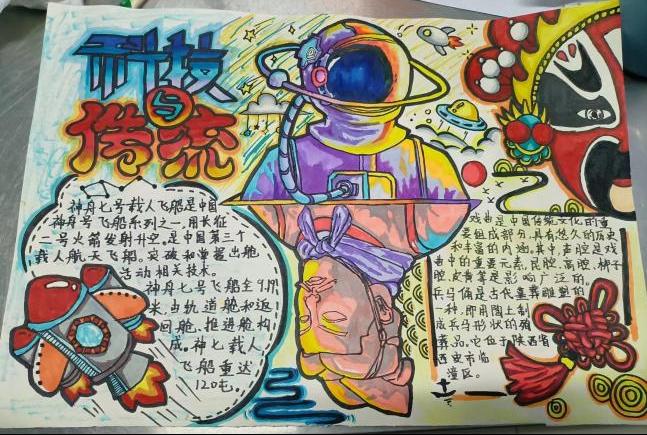 科技
与
传流
神舟七号载人飞船是中国
神舟号飞船系列之一,用长征
二号火箭发射升空。是中国第三个
载人航天飞船。突破和掌握出舱
活动相关技术。
神舟七号飞船全9.19
米,由轨道舱和返
回舱、推进舱构
成。神七载人
飞船重达
120吨.
戏曲是中国传统文化的重
要组成部分,具有悠久的历史
和丰富的内涵。其中,声腔是戏
曲中的重要元素,昆腔、高腔、梆子
腔、皮黄等是影响广泛的。
兵马俑是古代墓葬雕塑的
一种,即用陶土制
成兵马形状的殉
葬品。它位于陕西省
西安市临
潼区。